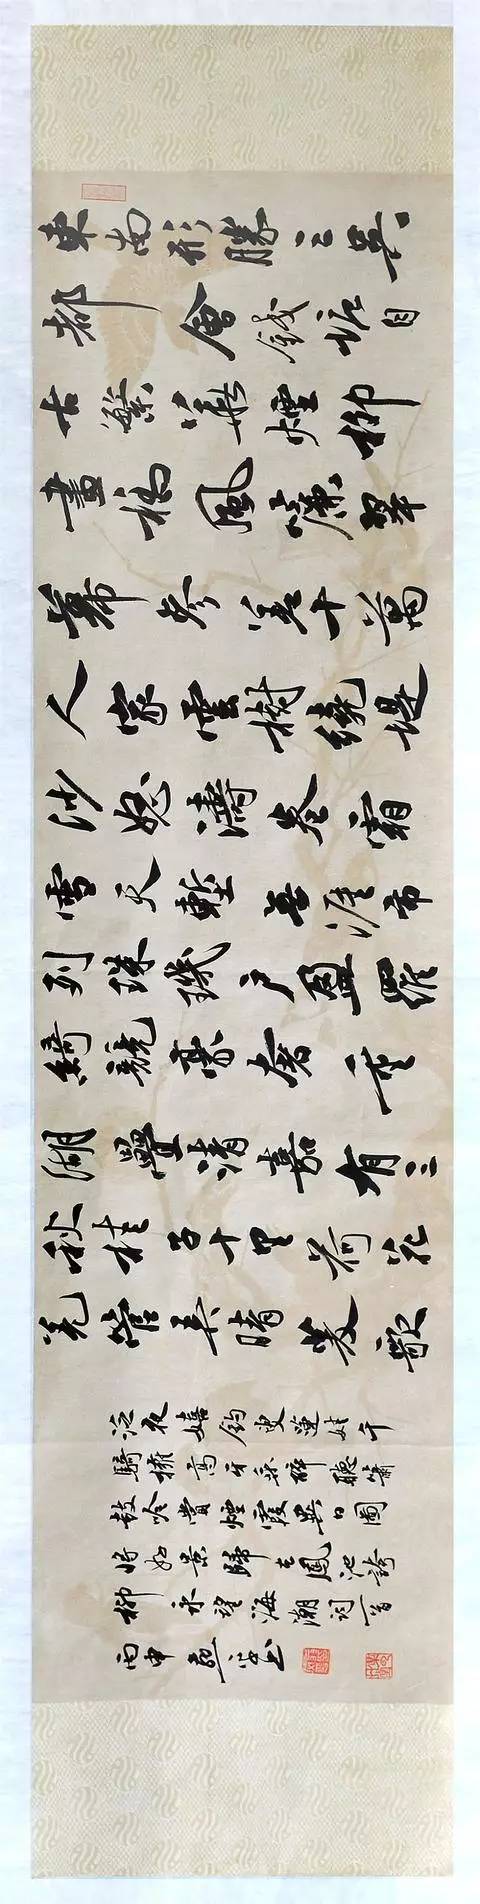 東南形勝三吳
都會錢塘自
古繁華煙柳
畫橋風簾翠
幕參差十萬
人家雲樹繞堤
沙怒濤卷霜
雪天塹無涯市
列珠璣戶盈羅
綺競豪奢重
湖疊清嘉有三
秋桂子十里荷花
羌管弄晴菱歌
泛夜嬉釣叟蓮娃千
騎擁高牙乘醉聽簫
鼓吟賞煙霞異日圖
將好景歸去鳳池誇
柳永望海潮詞一首
丙申書